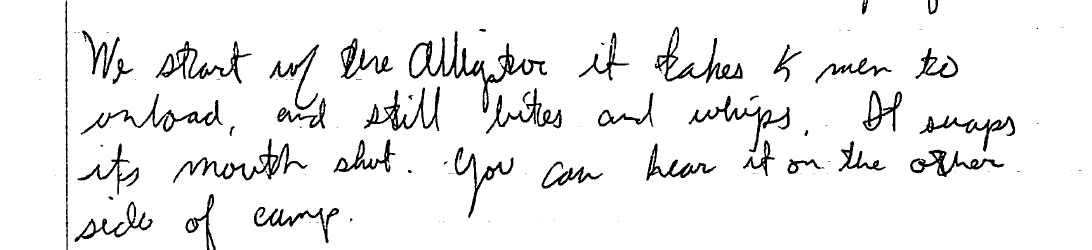 We start w/ the Alligator it takes 5 men to
unload, and still bites and whips. It snaps
its mouth shut. You can hear it on the other
side of camp.